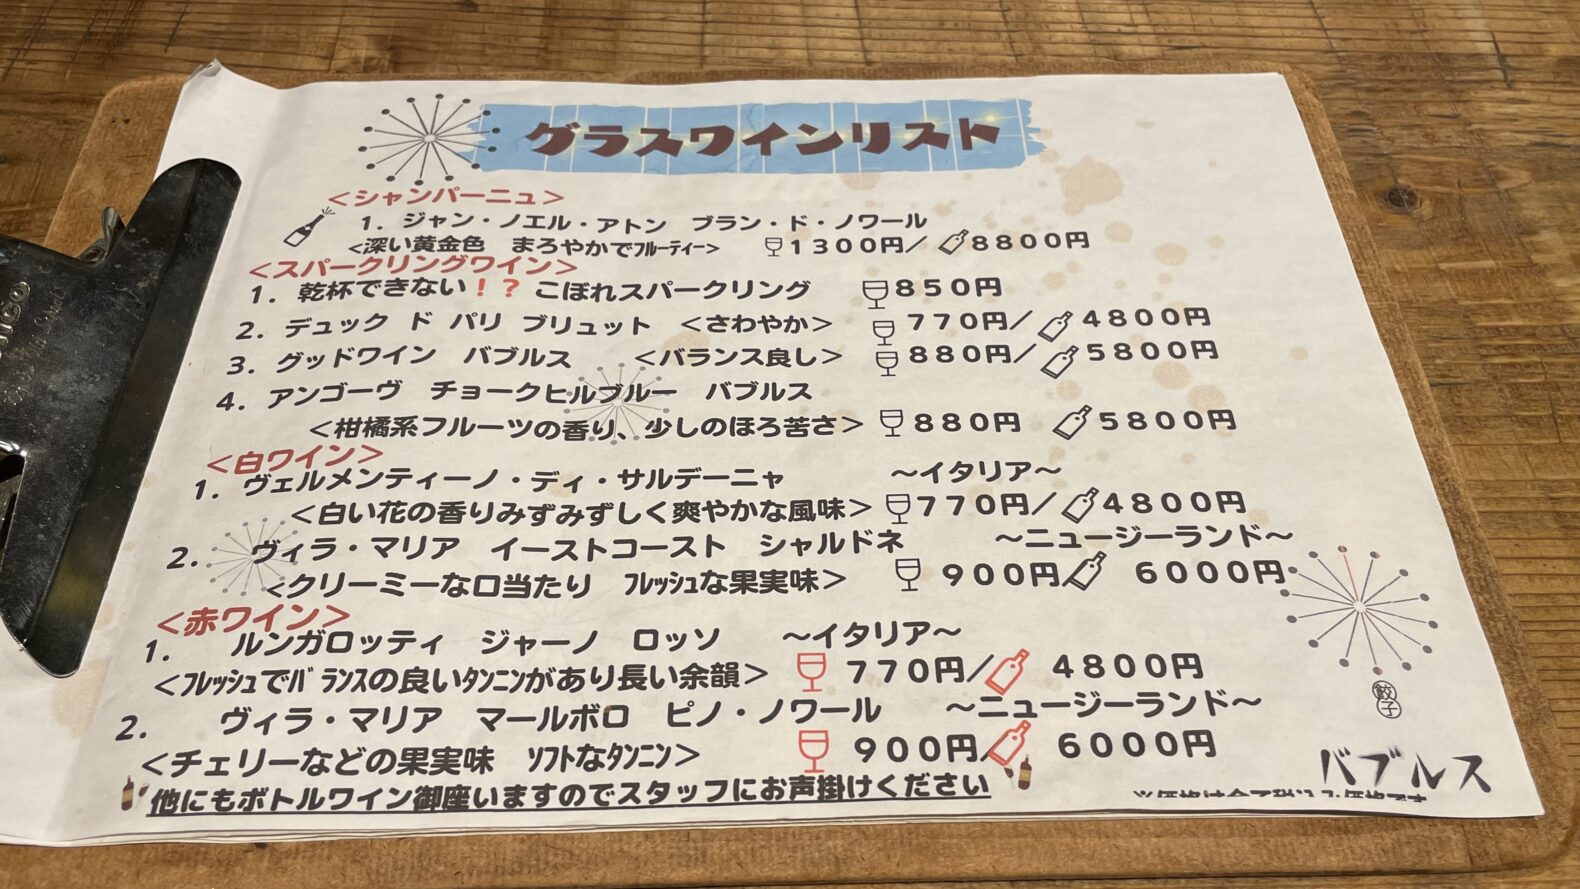 グラスワインリスト
＜シャンパーニュ＞
1. ジャン・ノエル・アトン ブラン・ド・ノワール
＜深い黄金色 まろやかでﾌﾙｰﾃｨｰ＞ 1300円／ 8800円
＜スパークリングワイン＞
1. 乾杯できない！？こぼれスパークリング 850円
2. デュック ド パリ ブリュット ＜さわやか＞ 770円／ 4800円
3. グッドワイン バブルス ＜バランス良し＞ 880円／ 5800円
4. アンゴーヴ チョークヒルブルー バブルス
＜柑橘系フルーツの香り、少しのほろ苦さ＞ 880円 5800円
＜白ワイン＞
1. ヴェルメンティーノ・ディ・サルデーニャ ～イタリア～
＜白い花の香りみずみずしく爽やかな風味＞ 770円／ 4800円
2. ヴィラ・マリア イーストコースト シャルドネ ～ニュージーランド～
＜クリーミーな口当たり ﾌﾚｯｼｭな果実味＞ 900円／ 6000円
＜赤ワイン＞
1. ルンガロッティ ジャーノ ロッソ ～イタリア～
＜ﾌﾚｯｼｭでﾊﾞﾗﾝｽの良いﾀﾝﾆﾝがあり長い余韻＞ 770円／ 4800円
2. ヴィラ・マリア マールボロ ピノ・ノワール ～ニュージーランド～
＜チェリーなどの果実味 ｿﾌﾄなﾀﾝﾆﾝ＞ 900円／ 6000円
他にもボトルワイン御座いますのでスタッフにお声掛けください
餃子
バブルス
※価格は全て税込み価格です